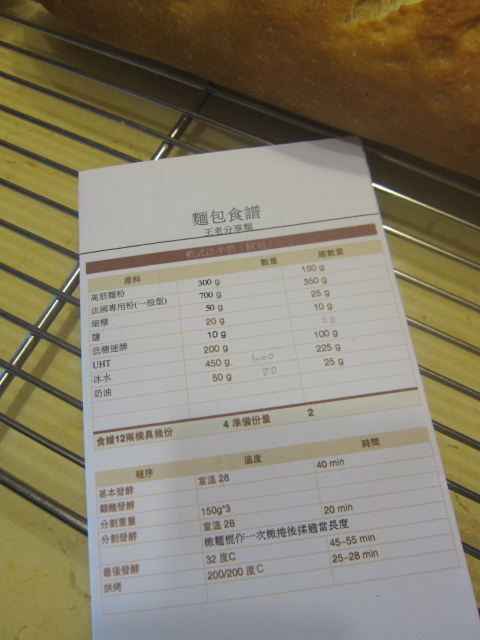 麵包食譜
王老分享類
軟式法牛奶
原料 數量 總數量
高筋麵粉 300 g 150 g
法國專用粉(一般型) 700 g 350 g
細糖 50 g 25 g
鹽 20 g 10 g
低糖速酵 10 g 5 g
UHT 200 g 100 g
冰水 450 g 225 g
奶油 50 g 80 25 g
食譜12兩模具幾份 4 準備份量 2
程序 溫度 時間
基本發酵 室溫 28 40 min
翻麵發酵
分割重量 150g*3
分割發酵 室溫 28 20 min
橄麵棍作一次橄捲後揉適當長度
最後發酵 32 度C 45~55 min
烘烤 200/200 度 C 25~28 min